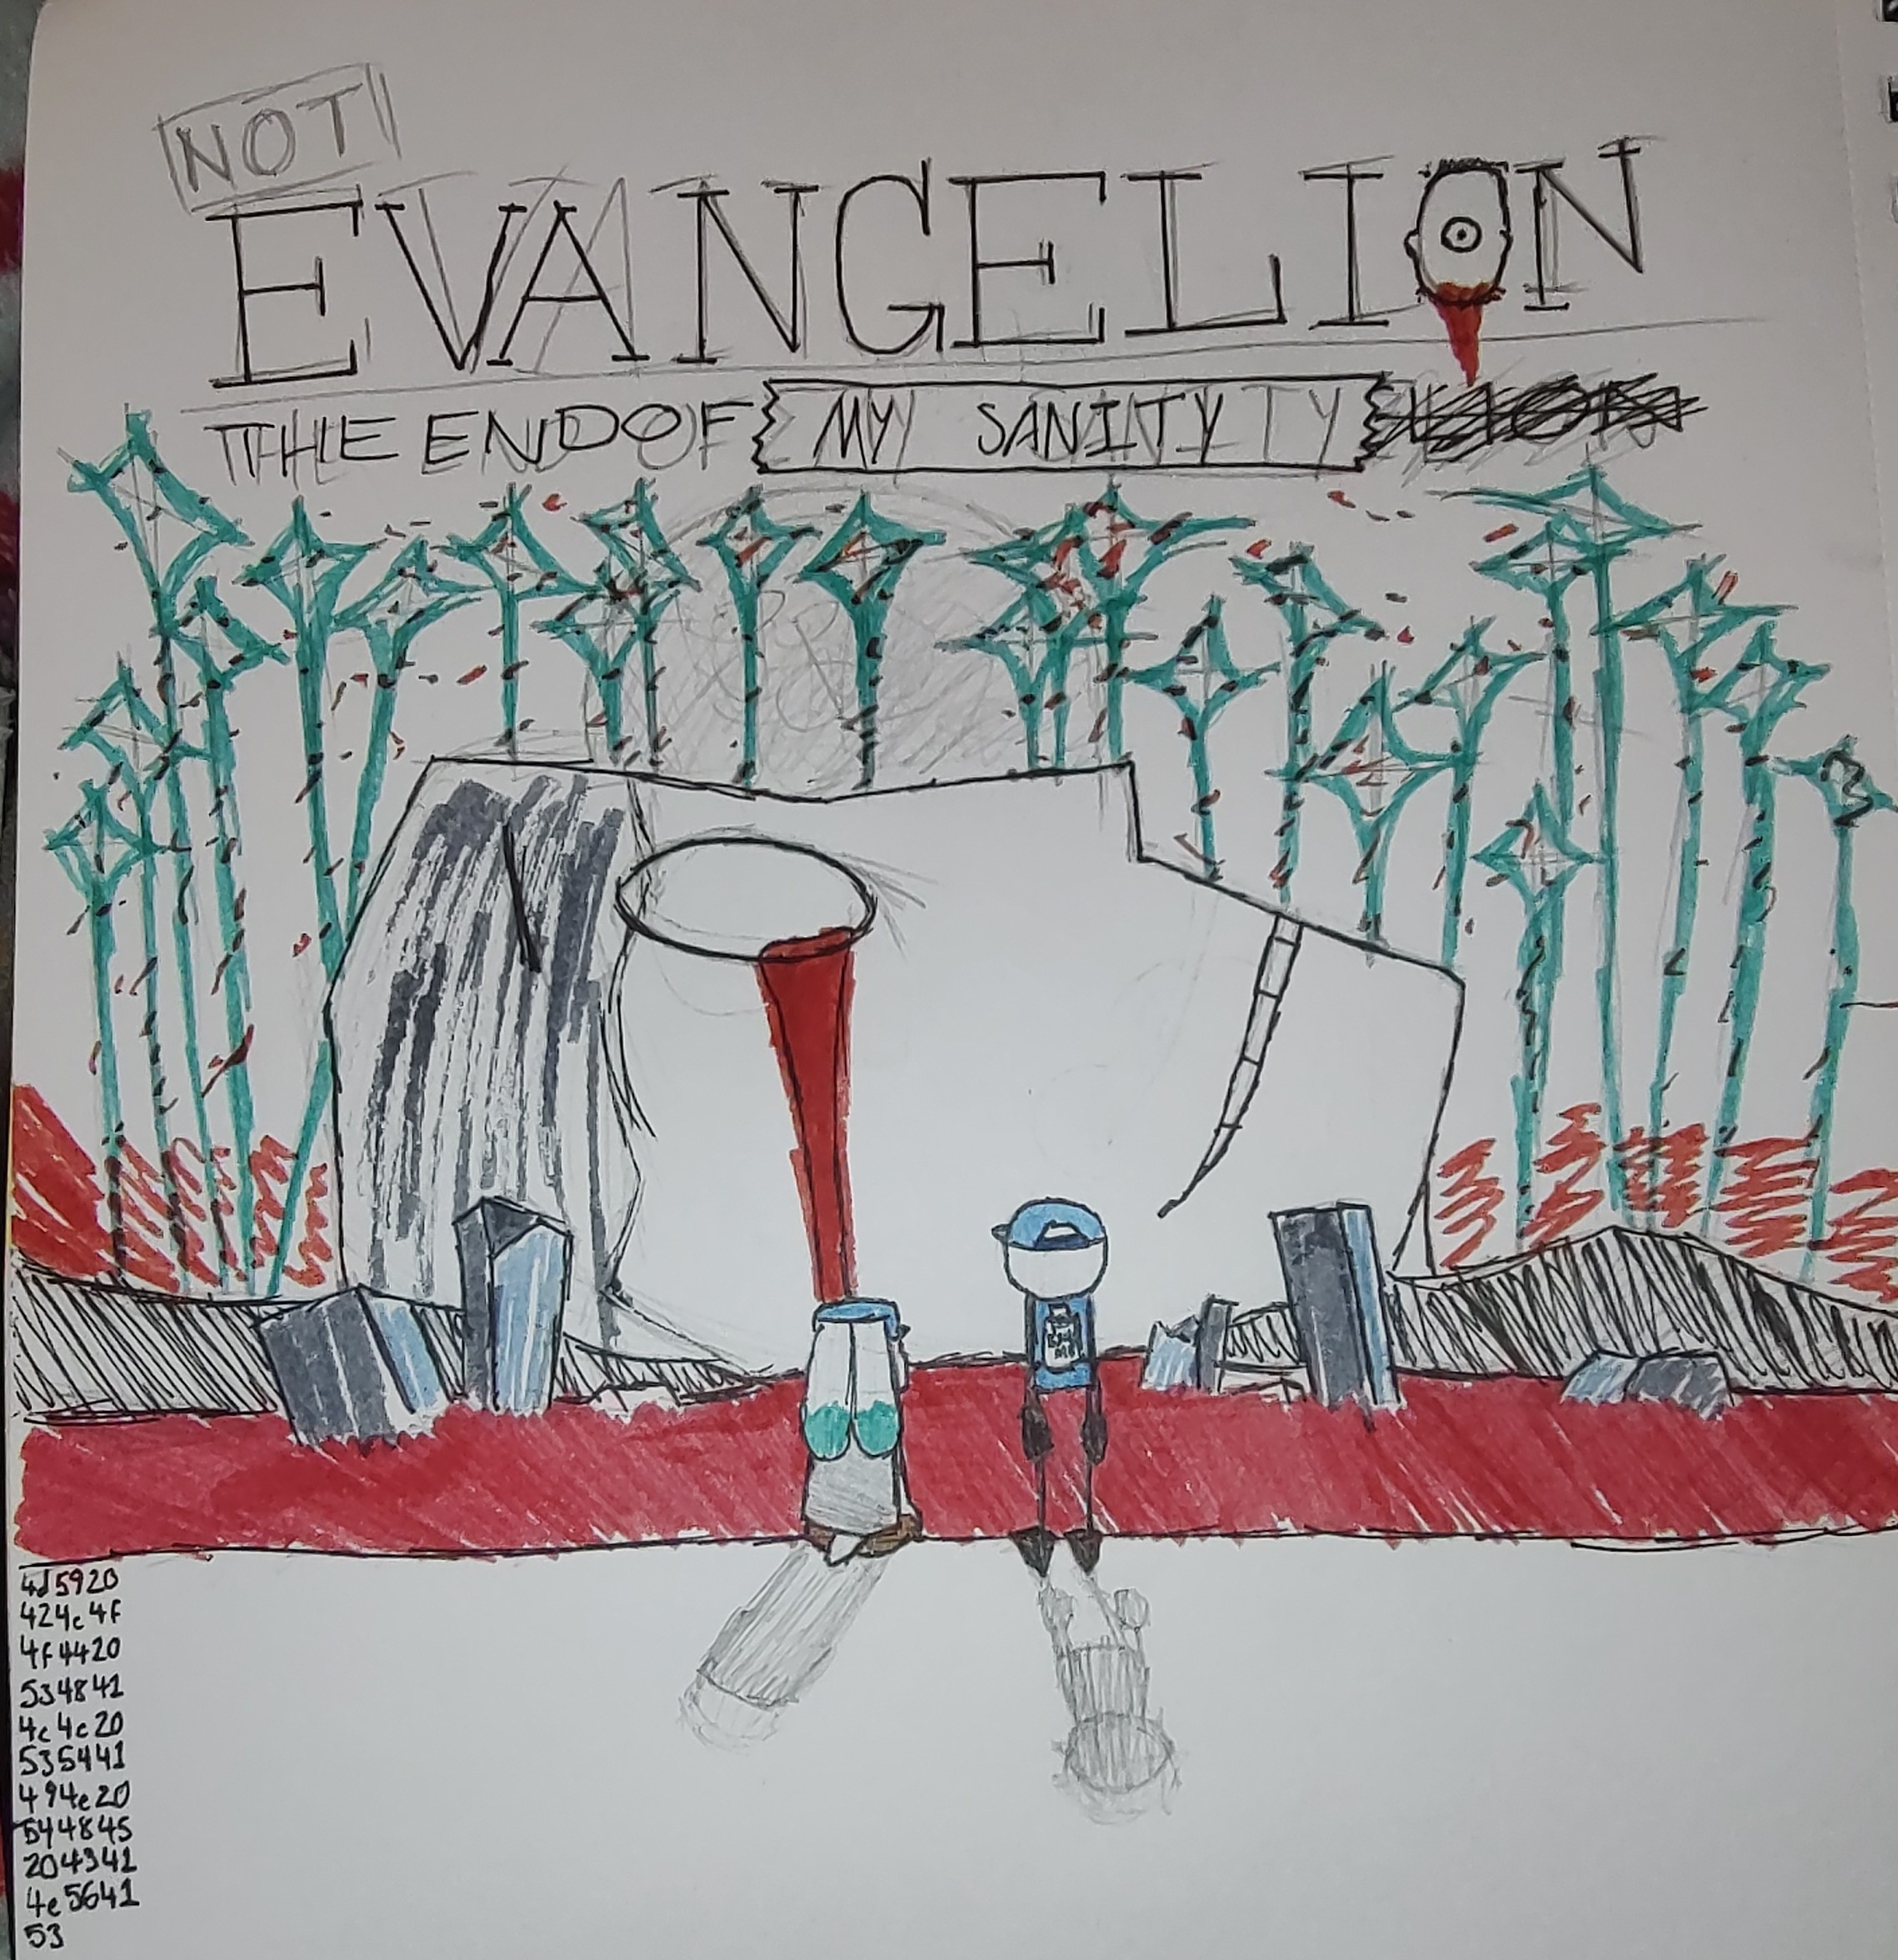 NOT
EVANGELION
THE END OF MY SANITY
4d5920
424c4f
4f4420
534841
4c4c20
535441
494e20
544845
204341
4e5641
53